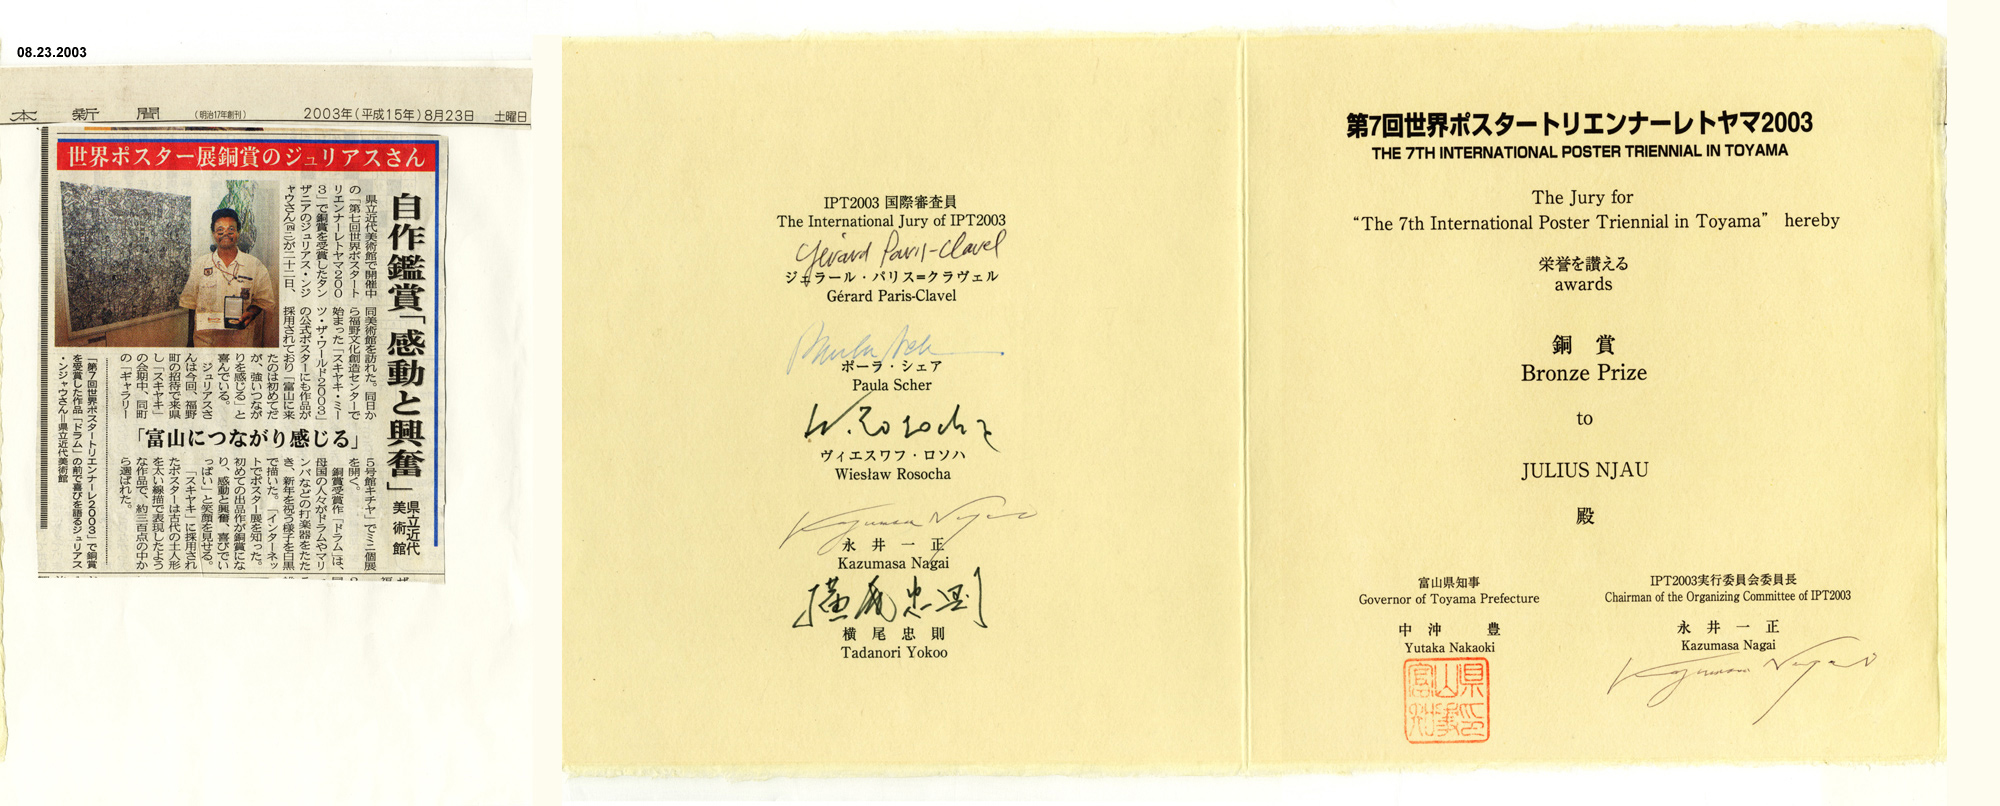 08.23.2003
本 新 聞 (明治17年創刊) 2003年(平成15年)8月23日 土曜日
世界ポスター展銅賞のジュリアスさん
自作鑑賞「感動と興奮」
県立近代
美術館
県立近代美術館で開催中
の「第七回世界ポスタート
リエンナーレトヤマ200
3」で銅賞を受賞したタン
ザニアのジュリアス・ンジ
ャウさん(四三)が二十二日、
同美術館を訪れた。同日か
ら福野文化創造センターで
始まった「スキヤキ・ミー
ツ・ザ・ワールド2003」
の公式ポスターにも作品が
採用されており「富山に来
たのは初めてだ
が、強いつなが
りを感じる」と
喜んでいる。
ジュリアスさ
んは今回、福野
町の招待で来県
し「スキヤキ」
の会期中、同町
の「ギャラリー
「富山につながり感じる」
5号館キチヤ」でミニ個展
を開く。
銅賞受賞作「ドラム」は、
母国の人々がドラムやマリ
ンバなどの打楽器をたた
き、新年を祝う様子を白黒
で描いた。「インターネッ
トでポスター展を知った。
初めての出品作が銅賞にな
り、感動と興奮、喜びでい
っぱい」と笑顔を見せる。
「スキヤキ」に採用され
たポスターは古代の土人形
を太い線描で表現したよう
な作品で、約三百点の中か
ら選ばれた。
「第7回世界ポスタートリエンナーレ2003」で銅賞
を受賞した作品「ドラム」の前で喜びを語るジュリアス
・ンジャウさん＝県立近代美術館
IPT2003 国際審査員
The International Jury of IPT2003
Gérard Paris-Clavel
ジェラール・パリス=クラヴェル
Gérard Paris-Clavel
ポーラ・シェア
Paula Scher
W. Rosocha
ヴィエスワフ・ロソハ
Wiesław Rosocha
Kazumasa Nagai
永井一正
Kazumasa Nagai
横尾忠則
横尾忠則
Tadanori Yokoo
第7回世界ポスタートリエンナーレトヤマ2003
THE 7TH INTERNATIONAL POSTER TRIENNIAL IN TOYAMA
The Jury for
“The 7th International Poster Triennial in Toyama” hereby
栄誉を讃える
awards
銅 賞
Bronze Prize
to
JULIUS NJAU
殿
富山県知事
Governor of Toyama Prefecture
中沖 豊
Yutaka Nakaoki
富山県知事印
IPT2003実行委員会委員長
Chairman of the Organizing Committee of IPT2003
永井一正
Kazumasa Nagai
Kazumasa Nagai